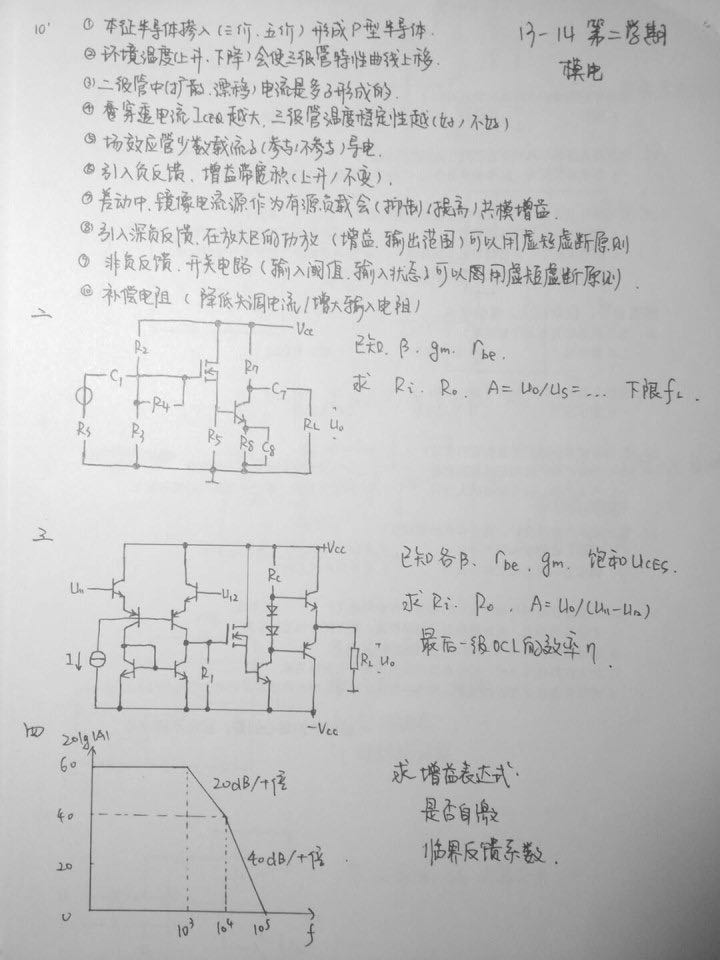 10'
① 本征半导体掺入(三价、五价)形成P型半导体.
13-14 第二学期
模电
② 环境温度(上升、下降)会使三级管特性曲线上移.
③ 二级管中(扩散、漂移)电流是多子形成的.
④ 穿透电流ICEO越大,三级管温度稳定性越(好/不好)
⑤ 场效应管少数载流子(参与/不参与)导电.
⑥ 引入负反馈,增益带宽积(上升/不变).
⑦ 差动中,镜像电流源作为有源负载会(抑制/提高)共模增益.
⑧ 引入深负反馈,在放大区的功放(增益、输出范围)可以用虚短虚断原则
⑨ 非负反馈,开关电路(输入阈值、输入状态)可以用虚短虚断原则.
⑩ 补偿电阻(降低失调电流/增大输入电阻)
二
Vcc
R2
R7
C1
C7
R4
RL
Uo
Rs
R3
R5
R8
C8
已知 β. gm. rbe.
求 Ri. Ro. A=Uo/Us=... 下限fL.
三
+Vcc
Rc
Ui1
Ui2
I↓
R1
RL
Uo
-Vcc
已知各β. rbe. gm. 饱和UCES.
求Ri. Ro. A=Uo/(Ui1-Ui2)
最后一级OCL的效率η.
四
20lg|A|
60
20dB/十倍
40
40dB/十倍.
20
0
10³
10⁴
10⁵
f
求增益表达式.
是否自激
临界反馈系数.